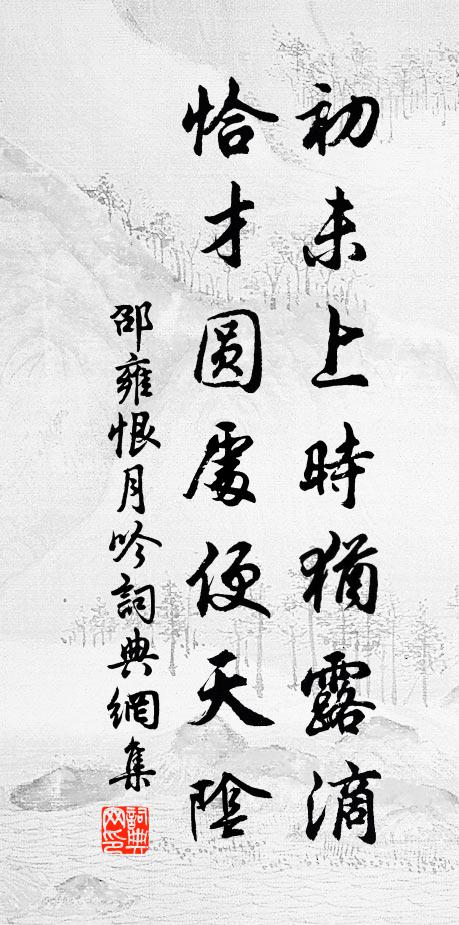 初未上時猶露滴
恰才圓處便天陰
邵雍恨月吟詞典網集
詞典網印